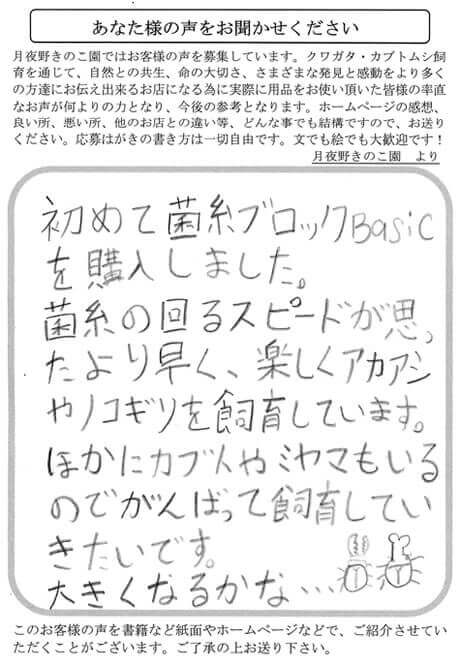 あなた様の声をお聞かせください
月夜野きのこ園ではお客様の声を募集しています。クワガタ・カブトムシ飼
育を通じて、自然との共生、命の大切さ、さまざまな発見と感動をより多く
の方達にお伝え出来るお店になる為に実際に用品をお使い頂いた皆様の率直
なお声が何よりの力となり、今後の参考となります。ホームページの感想、
良い所、悪い所、他のお店との違い等、どんな事でも結構ですので、お送り
ください。応募はがきの書き方は一切自由です。文でも絵でも大歓迎です！
月夜野きのこ園　より
初めて菌糸ブロックBasic
を購入しました。
菌糸の回るスピードが思っ
たより早く、楽しくアカアシ
やノコギリを飼育しています。
ほかにカブトやミヤマもいる
のでがんばって飼育してい
きたいです。
大きくなるかな…
このお客様の声を書籍など紙面やホームページなどで、ご紹介させてい
ただくことがございます。ご了承の上お送り下さい。